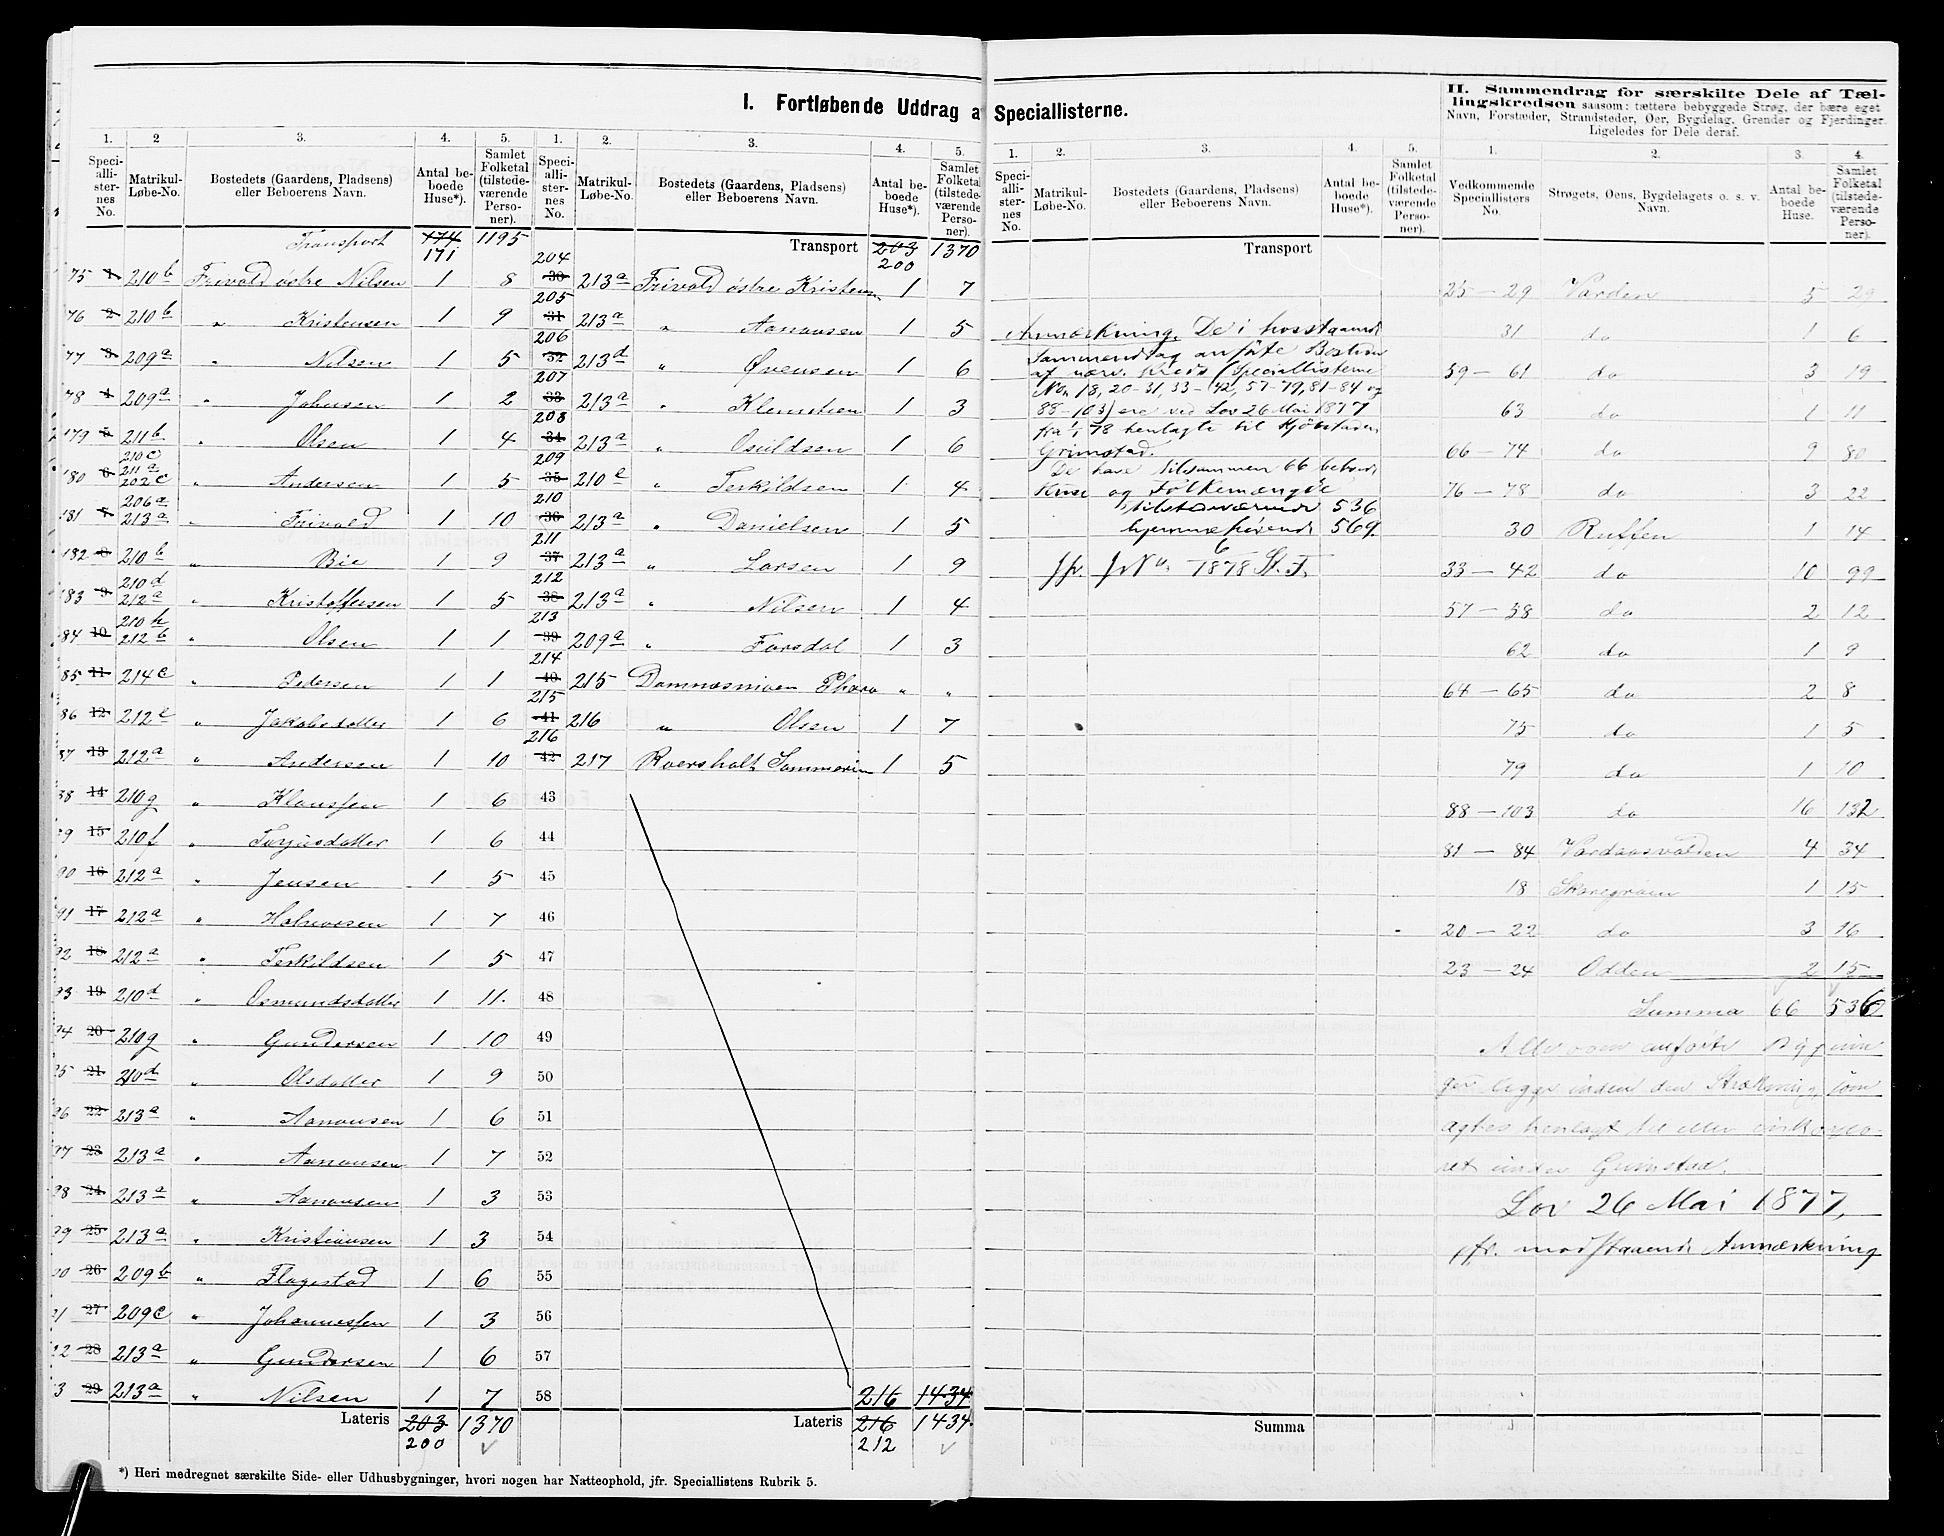 I. Fortløbende Uddrag af Speciallisterne.
1. 2 3. 4. 5.
Speciallisternes No. Matrikul-Løbe-No. Bostedets (Gaardens, Pladsens) eller Beboerens Navn. Antal beboede Huse*). Samlet Folketal (tilstedeværende Personer).
Transport 174 1195
171
75 1 210b Frivold østre Nilsen 1 8
76 2 210b " Kristensen 1 9
77 3 209a " Nilsen 1 5
78 4 209a " Johnsen 1 2
179 5 211b " Olsen 1 4
210c
211a
180 6 202c " Andersen 1 5
206a
181 7 213a " Frivold 1 10
182 8 210b " Bie 1 9
210d
83 9 212a " Kristoffersen 1 5
210h
84 10 212b " Olsen 1 1
85 11 214c " Pedersen 1 1
86 12 212c " Jakobsdatter 1 6
87 13 212a " Andersen 1 10
88 14 210g " Klaussen 1 6
89 15 210f " Terjusdatter 1 6
90 16 212a " Jensen 1 5
91 17 212a " Halvorsen 1 7
92 18 212a " Terkildsen 1 5
93 19 210d " Osmundsdatter 1 11.
94 20 210g " Gundersen 1 10
95 21 210d " Olsdatter 1 9
96 22 213a " Aanonsen 1 6
97 23 213a " Aanonsen 1 7
98 24 213a " Aanonsen 1 3
99 25 213a " Kristiansen 1 3
00 26 209b " Flagestad 1 6
01 27 209c " Johannessen 1 3
2 28 213a " Gundersen 1 6
3 29 213a " Nilsen 1 7
Lateris 203 1370
200
*) Heri medregnet særskilte Side- eller Udhusbygninger, hvori nogen har Natteophold, jfr. Speciallistens Rubrik 5.
1. 2. 3. 4. 5.
Speciallisternes No. Matrikul-Løbe-No. Bostedets (Gaardens, Pladsens) eller Beboerens Navn. Antal beboede Huse*). Samlet Folketal (tilstedeværende Personer).
Transport 203 1370
200
204
30 213a Frivold østre Kristensen 1 7
205
31 213a " Aanonsen 1 5
206
32 213d " Øvensen 1 6
207
33 213a " Klemetsen 1 3
208
34 213a " Osuldsen 1 6
209
35 210e " Terkildsen 1 4
210
36 213a " Danielsen 1 5
211
37 213a " Larsen 1 9
212
38 213a " Nilsen 1 4
213
39 209a " Forsdal 1 3
214
40 215 " "
215
41 216 " Olsen 1 7
216
42 217 1 5
43
44
45
46
47
48
49
50
51
52
53
54
55
56
57
58 216 1434
Lateris 216 1434.
212
1. 2. 3. 4. 5.
Speciallisternes No. Matrikul-Løbe-No. Bostedets (Gaardens, Pladsens) eller Beboerens Navn. Antal beboede Huse*). Samlet Folketal (tilstedeværende Personer).
Transport
Anmærkning. De i hosstaaende
Sammendrag anførte Bosteder
af nærv. Kreds (Speciallisterne
No. 18, 20-31, 33-42, 57-79, 81-84 og
88-103) ere ved Lov 26 Mai 1877
fra 1/1 78 henlagte til Kjøbstaden
Grimstad.
De have tilsammen 66 beboede
Huse og Folkemængde
tilstedeværende 536
hjemmehørende 569.
jfr. JNo. 6 1878 St. T.
Summa
II. Sammendrag for særskilte Dele af Tællingskredsen saasom: tættere bebyggede Strøg, der bære eget
Navn, Forstæder, Strandsteder, Øer, Bygdelag, Grender og Fjerdinger.
Ligeledes for Dele deraf.
1. 2. 3. 4.
Vedkommende Speciallisters No. Strøgets, Øens, Bygdelagets o. s. v. Navn. Antal beboede Huse. Samlet Folketal (tilstedeværende Personer).
25 – 29 Varden 5 29
31 do 1 6
59 – 61 do 3 19
63 do 1 11
66 – 74 do 9 80
76 – 78 do 3 22
30 Ruffen 1 14
33 – 42 do 10 99
57 – 58 do 2 12
62 do 1 9
64 – 65 do 2 8
75 do 1 5
79 do 1 10
88 – 103 do 16 132
81 – 84 4 34
18 1 15
20 – 22 do 3 16
23 – 24 Odden 2 15
Summa 66 536
Alle som anførte Bygnin
ger ligge inden den Strækning, som
agtes henlagt til eller
ret under Grimstad.
Lov 26 Mai 1877,
jfr. modstaaende Anmærkning